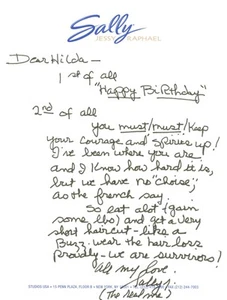 Sally
JESSY RAPHAEL
Dear Hilda -
1st of all
"Happy BiRthday"
2nd of all
you must/must/keep
your courage and spirits up!
I've been where you are
and I know how hard it is,
but we have no "choise,"
as the french say.
So eat alot (gain
some lbs) and get a very
short haircut - like a
Buzz. wear the hair loss
proudly - we are survivors!
All my love.
Sally
(The real one)
STUDIO USA • 15 PENN PLAZA, • NEW YORK, NY